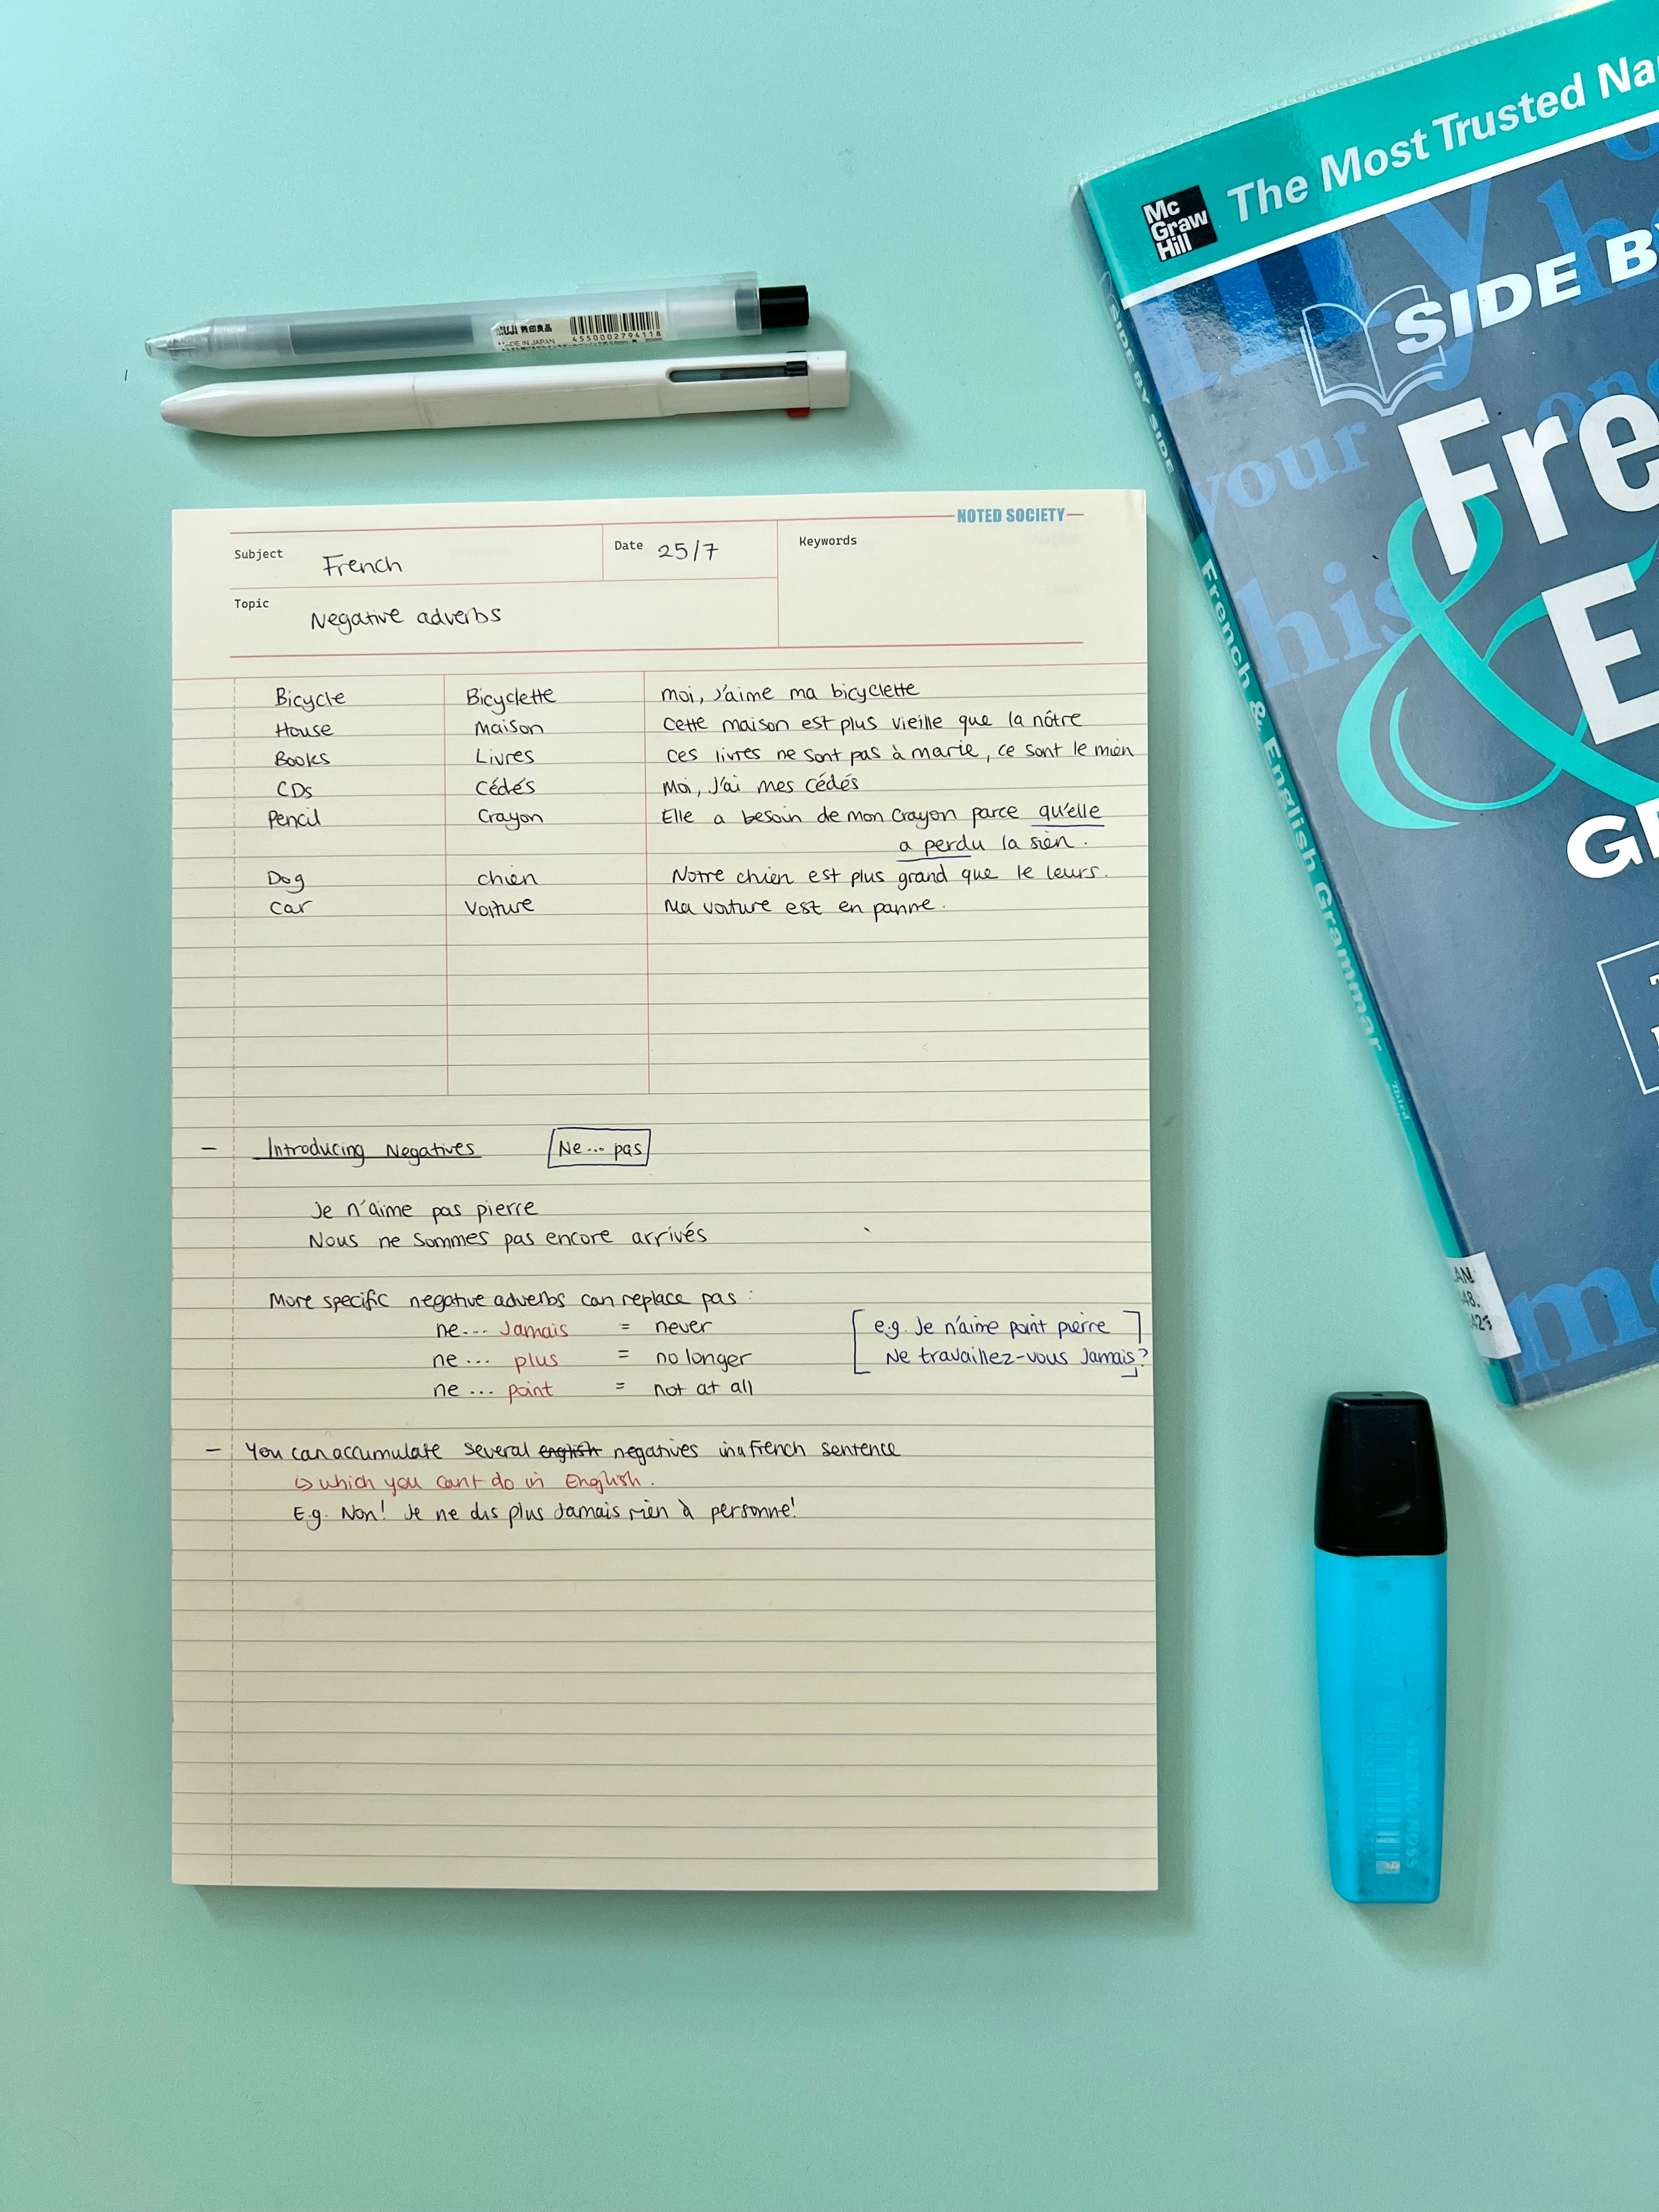 The Most Trusted Na
Mc
Graw
Hill
SIDE B
Fre
&
E
G
my
your
his
SIDE BY SIDE
French & English Grammar
Third
AN
48.
MUJI 無印良品
MADE IN JAPAN
4550002794118
NOTED SOCIETY
Subject French Date 25/7 Keywords
Topic Negative adverbs
Bicycle Bicyclette moi, J'aime ma bicyclette
House Maison Cette maison est plus vieille que la nôtre
Books Livres ces livres ne sont pas à marie, ce sont le mien
CDs Cédés Moi, J'ai mes cédés
Pencil Crayon Elle a besoin de mon crayon parce qu'elle
a perdu la sien.
Dog chien Notre chien est plus grand que le leurs.
Car Voiture Ma voiture est en panne.
- Introducing Negatives Ne... pas
Je n'aime pas pierre
Nous ne sommes pas encore arrivés
More specific negative adverbs can replace pas:
ne... Jamais = never
ne ... plus = no longer
ne ... point = not at all
[e.g. Je n'aime point pierre
Ne travaillez-vous Jamais?]
- You can accumulate several english negatives in a French sentence
↳ which you cant do in English.
E.g. Non! Je ne dis plus Jamais rien à personne!